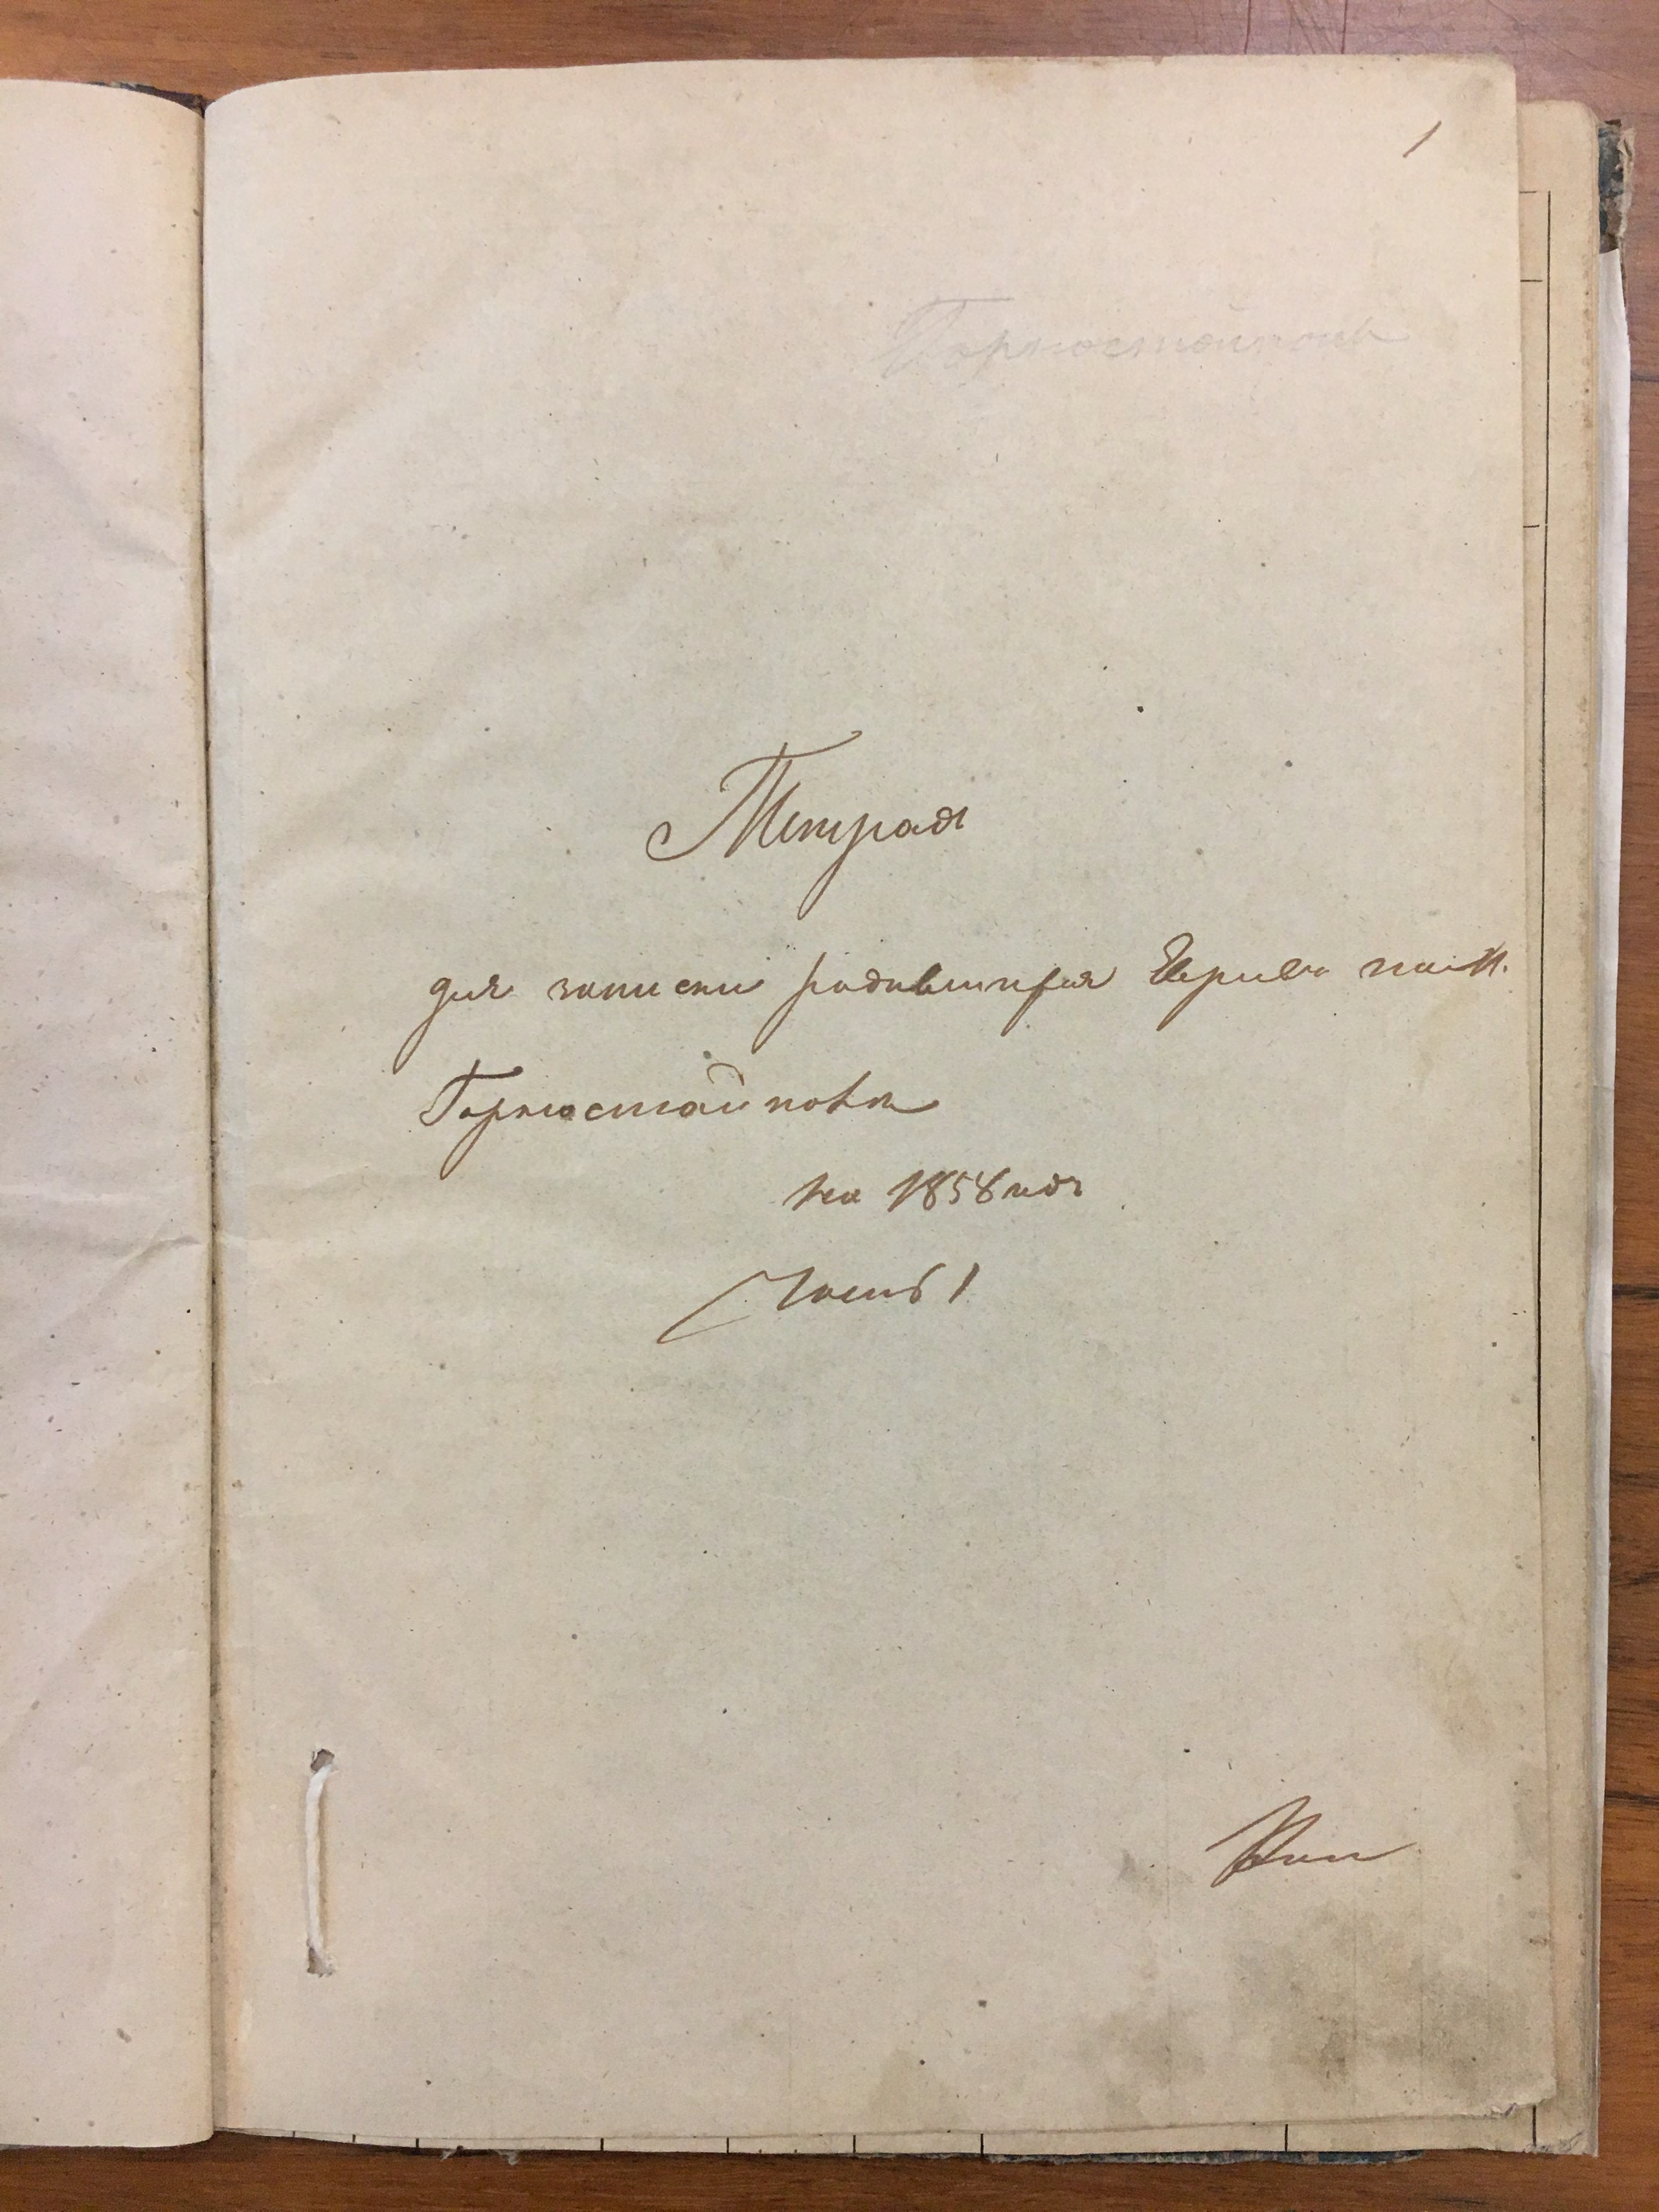 1
Горностайполь
Тетрадь
для записки родившихся Евреевъ по м.
Горностайполю
на 1858 годъ
Часть 1